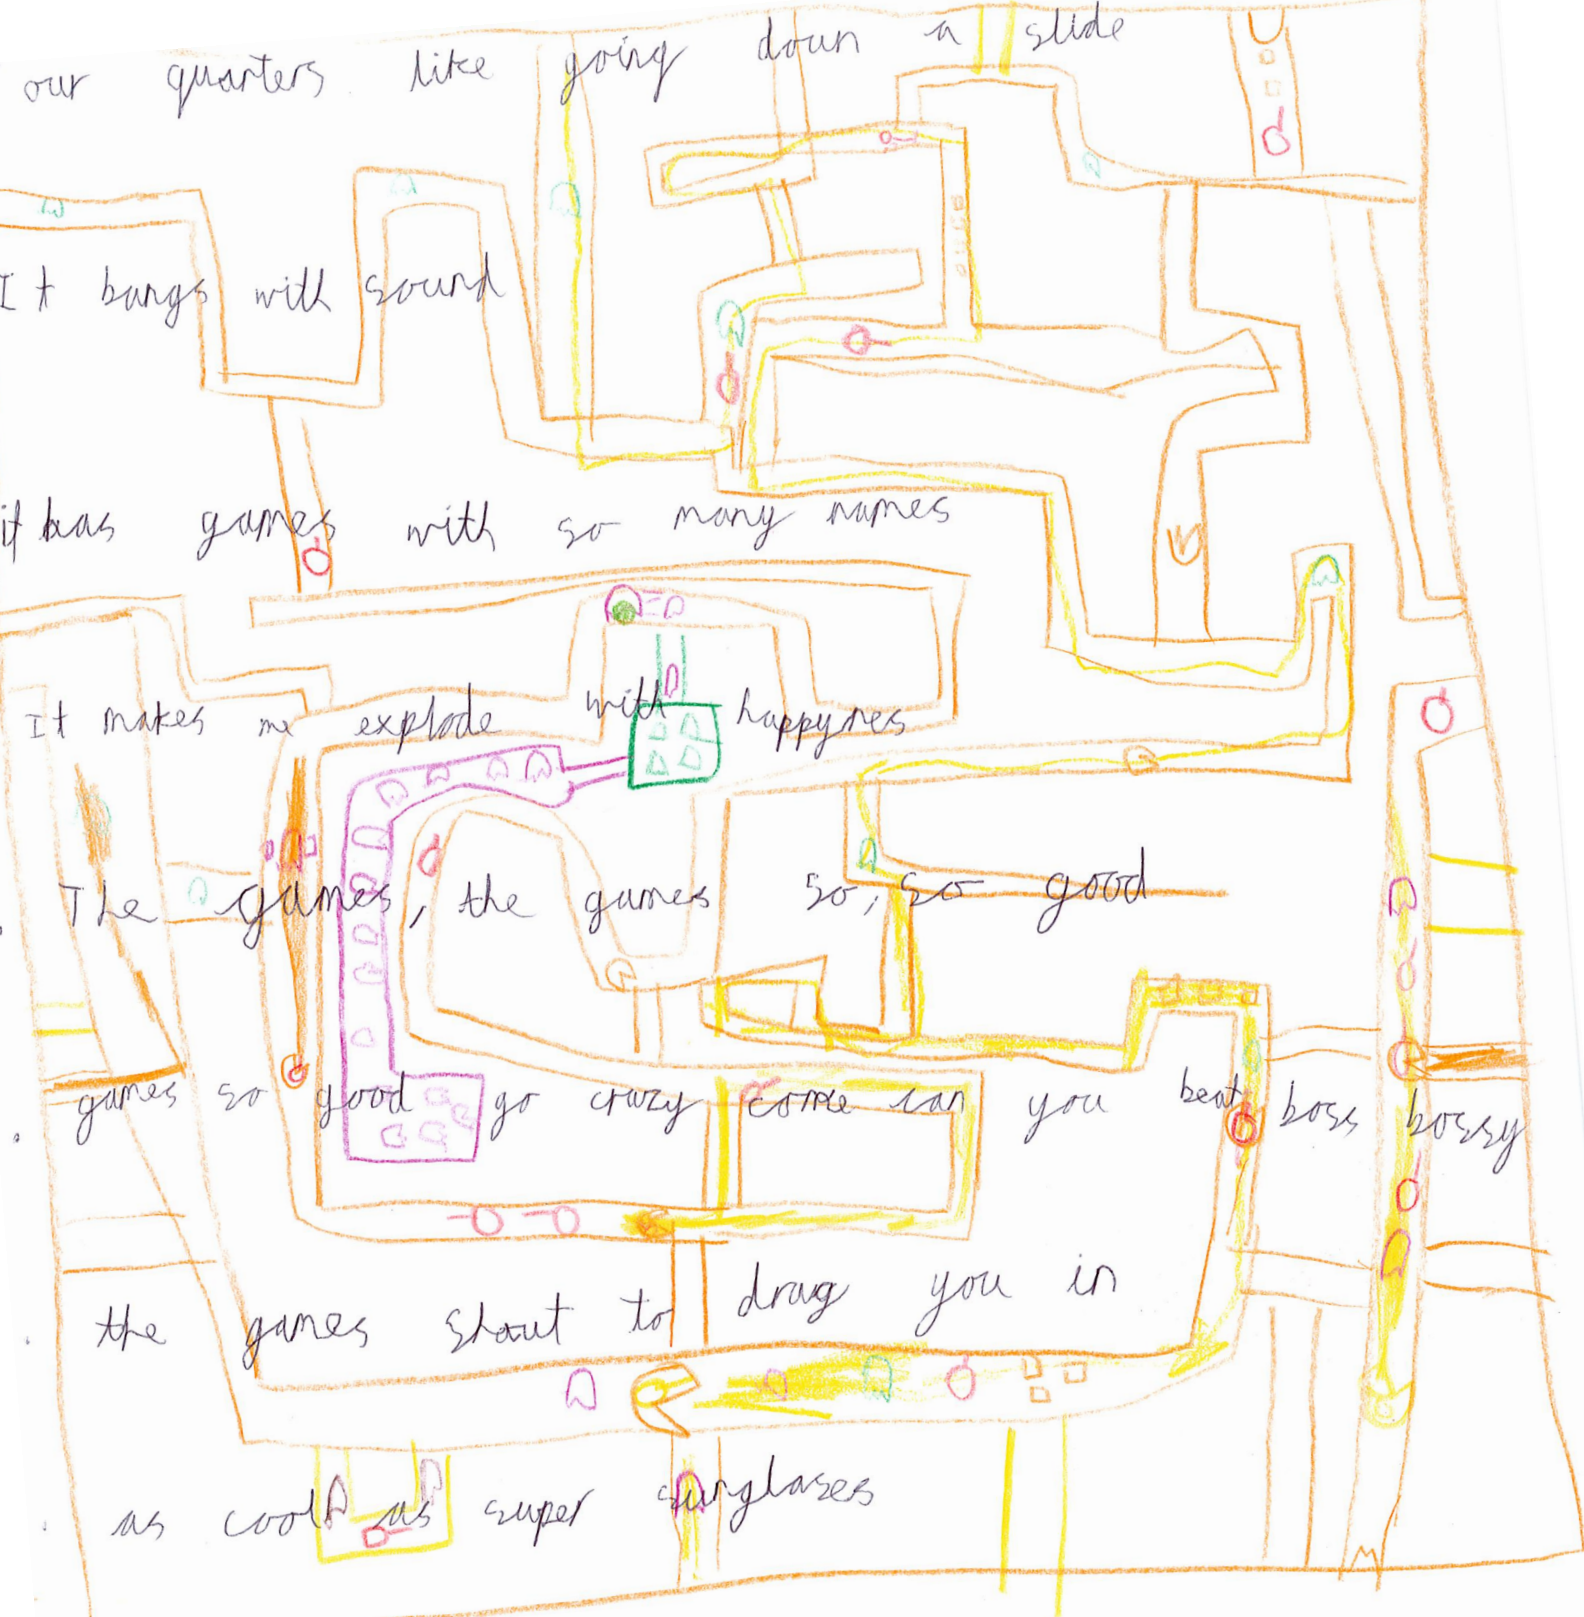 our quarters like going down a slide
It bangs with sound
it has games with so many names
It makes me explode with happynes
The games, the games so, so good
games so good go crazy come can you beat boss bossy
the games shout to drag you in
as cool as super sunglases